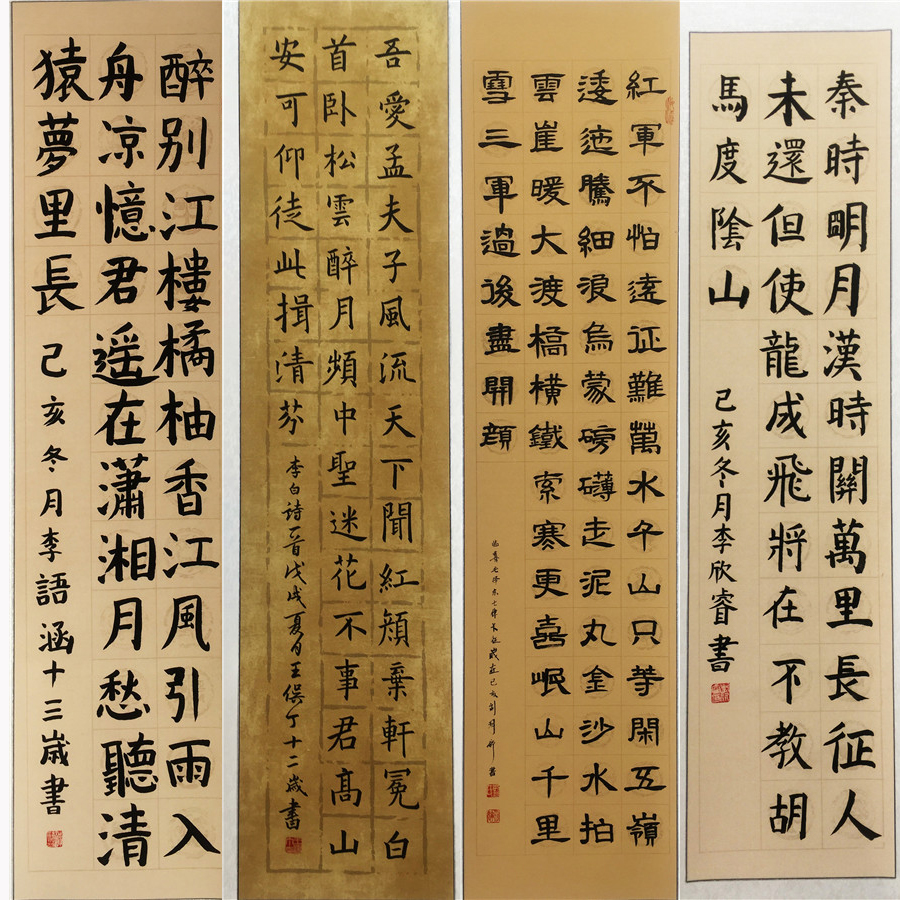 秦時明月漢時關萬里長征人
未還但使龍成飛將在不教胡
馬度陰山
己亥冬月李欣睿書
紅軍不怕遠征難萬水千山只等閑五嶺
逶迤騰細浪烏蒙磅礴走泥丸金沙水拍
雲崖暖大渡橋橫鐵索寒更喜岷山千里
雪三軍過後盡開顔
吾愛孟夫子風流天下聞紅顔棄軒冕白
首卧松雲醉月頻中聖迷花不事君高山
安可仰徒此揖清芬
李白诗一首戊戌夏月王保丁十二歲書
醉别江樓橘柚香江風引雨入
舟凉憶君遥在瀟湘月愁聽清
猿夢里長
己亥冬月李語涵十三歲書